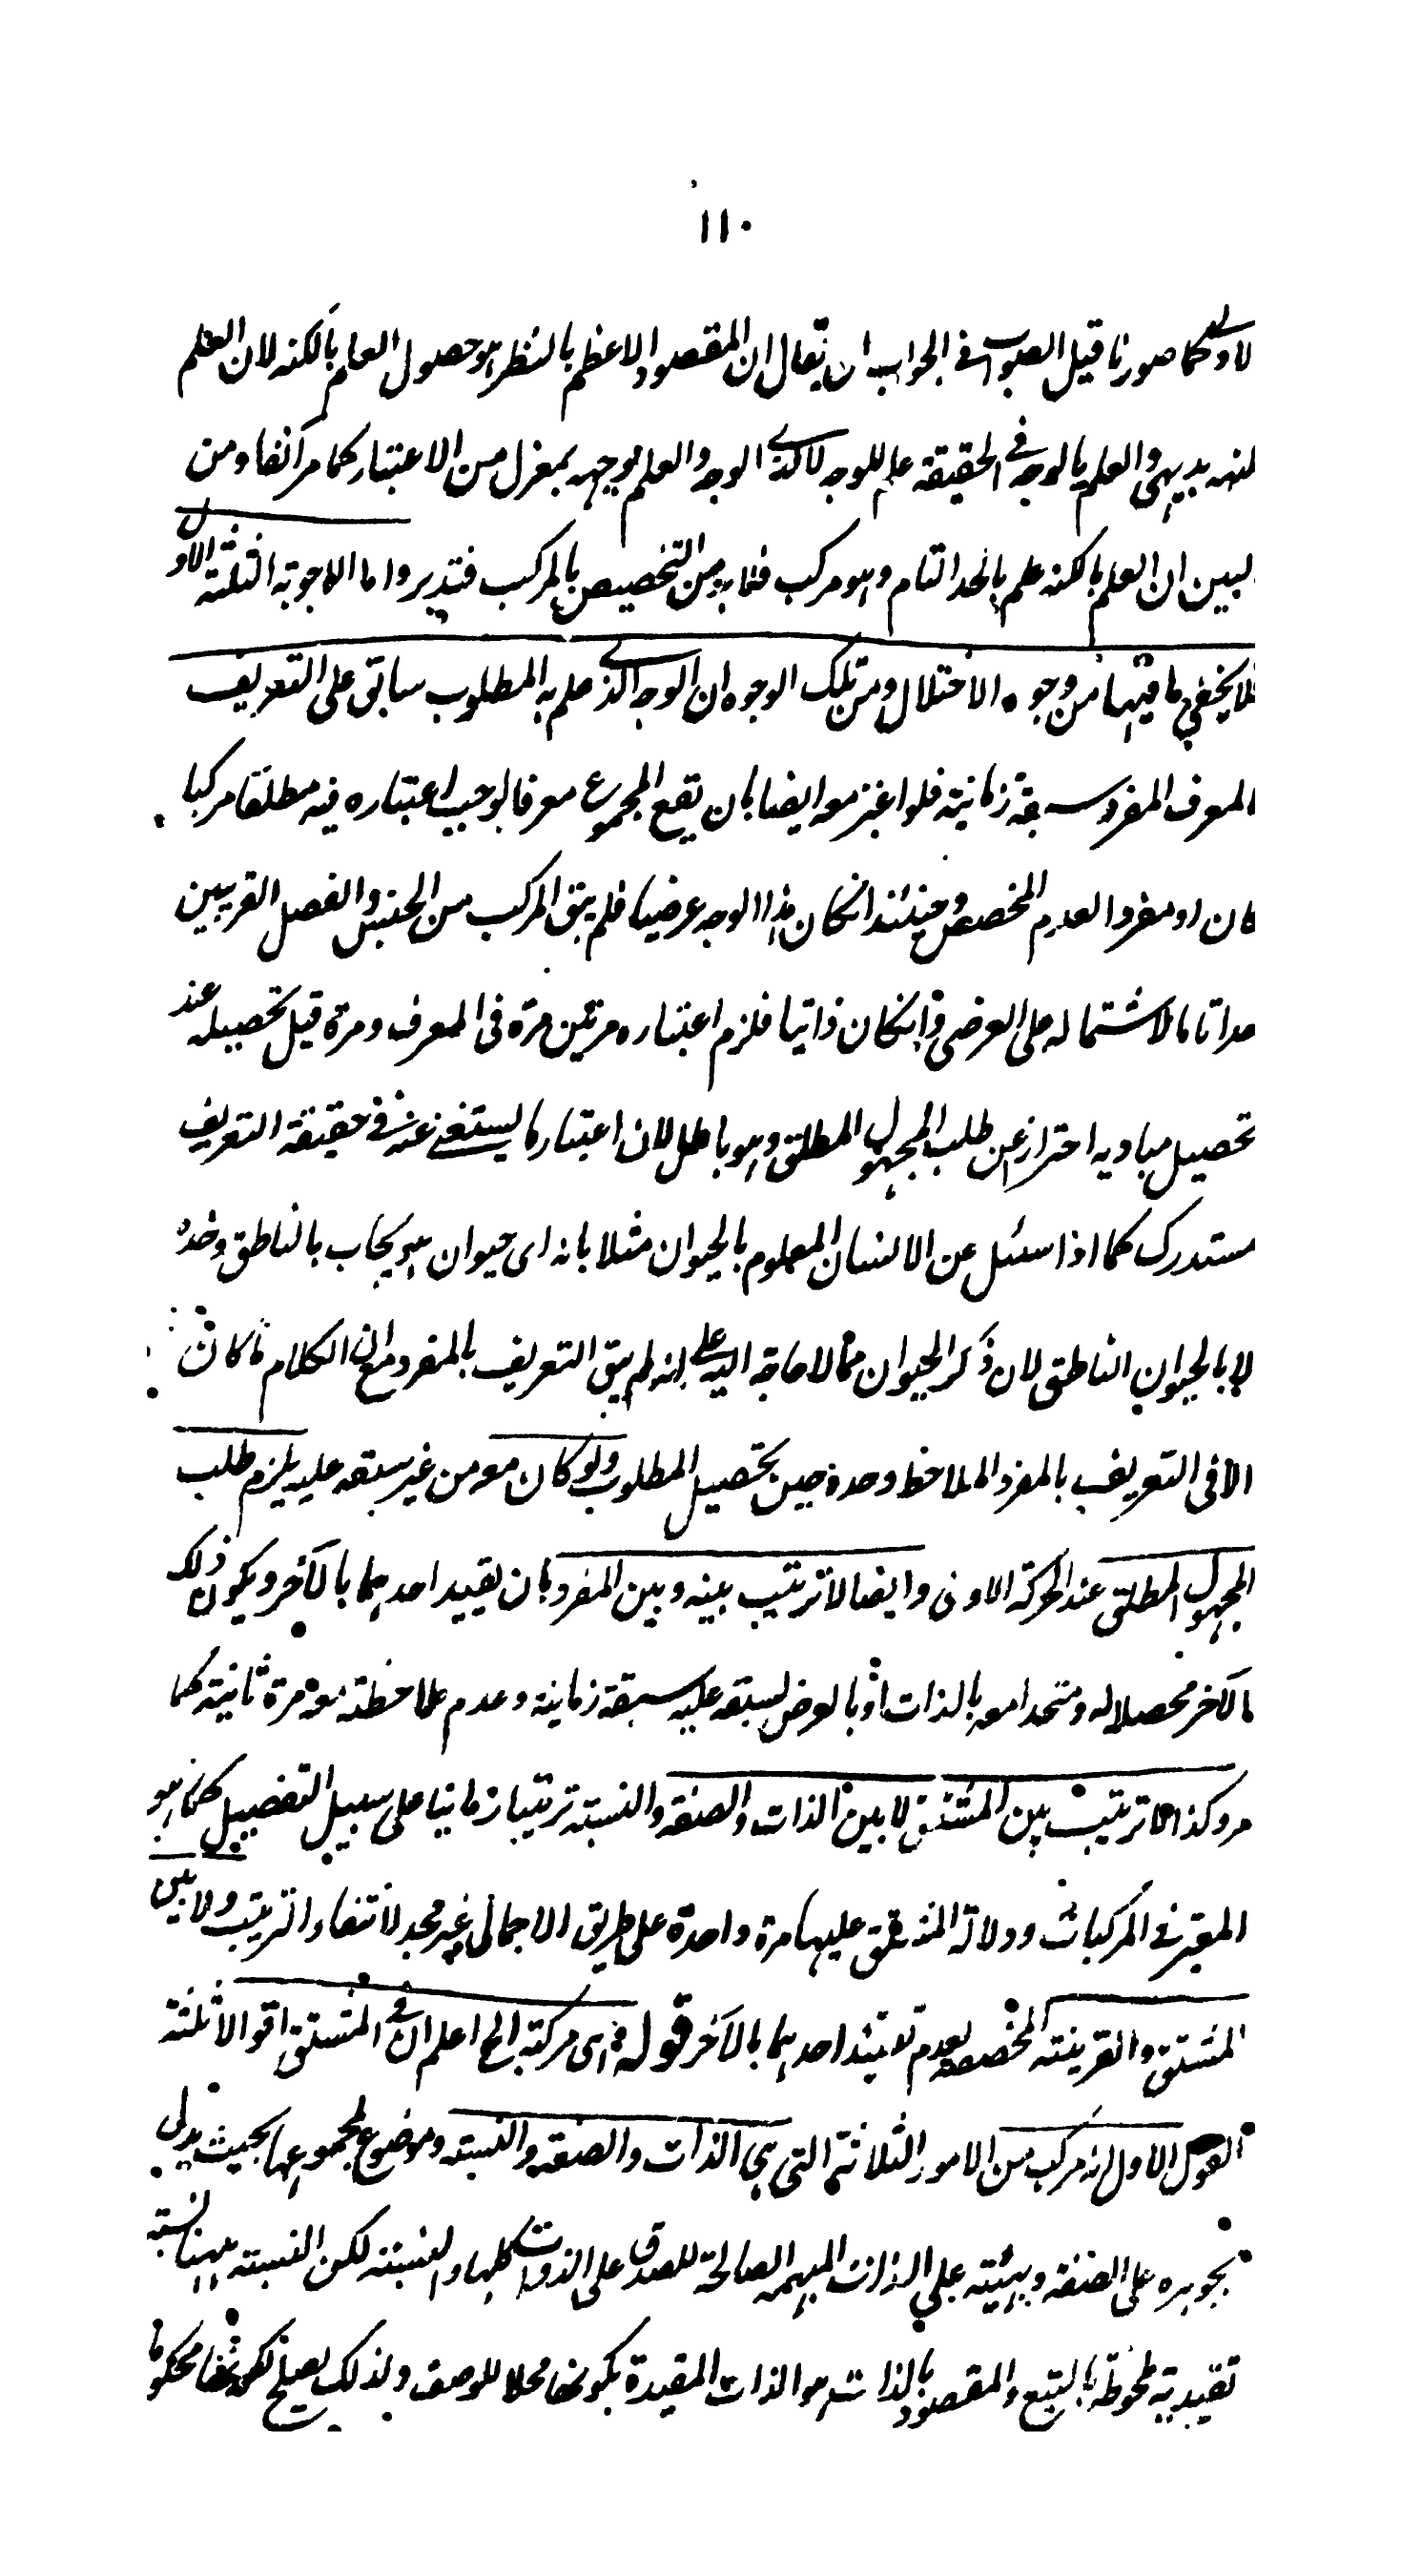 ١١٠
لاولى كما صورنا قيل الصواب فى الجواب ان يقال ان المقصود الاعظم بالنظر هو حصول العلم بالكنه لان العلم
لنه بديهى والعلم بالوجه فى الحقيقة علم للوجه لا لذى الوجه والعلم بوجهه بمعزل من الاعتبار كما مر آنفا ومن
لبين ان العلم بالكنه علم بالحد التام وهو مركب فلا بد من التخصيص بالمركب فتدبر واما الاجوبة الثلثة الاول
فلا يخفى ما فيها من وجوه الاختلال ومن تلك الوجوه ان الوجه الذى علم به المطلوب سابق على التعريف
المعرف المفرد سبقة زمانية فلو اعتبر معه ايضا بان يقع المجموع معرفا لوجب اعتباره فيه مطلقا مركبا
كان او مفردا لعدم المخصص وحينئذ انكان هذا الوجه عرضيا فلم يبق المركب من الجنس والفصل القريبين
حدا تاما لاشتماله على العرضى وانكان ذاتيا فلزم اعتباره مرتين مرة فى المعرف ومرة قبل تحصيله عند
تحصيل مباديه احترازا عن طلب المجهول المطلق وهو باطل لان اعتبار ما يستغنى عنه فى حقيقة التعريف
مستدرك كما اذا سئل عن الانسان المعلوم بالحيوان مثلا بانه اى حيوان هو يجاب بالناطق وحده
لا بالحيوان الناطق لان ذكر الحيوان مما لا حاجة اليه على انه لم يبق التعريف بالمفرد مع ان الكلام ما كان
الا فى التعريف بالمفرد الملاحظ وحده حين تحصيل المطلوب ولو كان معه من غير سبقه عليه يلزم طلب
المجهول المطلق عند الحركة الاولى وايضا لا ترتيب بينه وبين المفرد بان يقيد احدهما بالآخر ويكون ذلك
الآخر محصلا له ومتحدا معه بالذات او بالعرض لسبقه عليه سبقة زمانية وعدم ملاحظته معه مرة ثانية كما
مر وكذا لا ترتيب بين المشتق لا بين الذات والصفة والنسبة ترتيبا زمانيا على سبيل التفصيل كما هو
المعتبر فى المركبات ودلالة المشتق عليها مرة واحدة على طريق الاجمالى غير مجد لانتفاء الترتيب ولا بين
المشتق والقرينة المخصصة لعدم تقييد احدهما بالآخر قوله فهى مركبة الخ اعلم ان فى المشتق اقوالا ثلثة
القول الاول انه مركب من الامور الثلاثة التى هى الذات والصفة والنسبة وموضوع لمجموعها بحيث يدل
بجوهره على الصفة وبهيئته على الذات المبهمة الصالحة للصدق على الذوات كلها والنسبة لكن النسبة ههنا نسبة
تقيدية ملحوظة بالتبع والمقصود بالذات هو الذات المقيدة بكونها محلا للوصف ولذلك يصلح لكونها محكوما